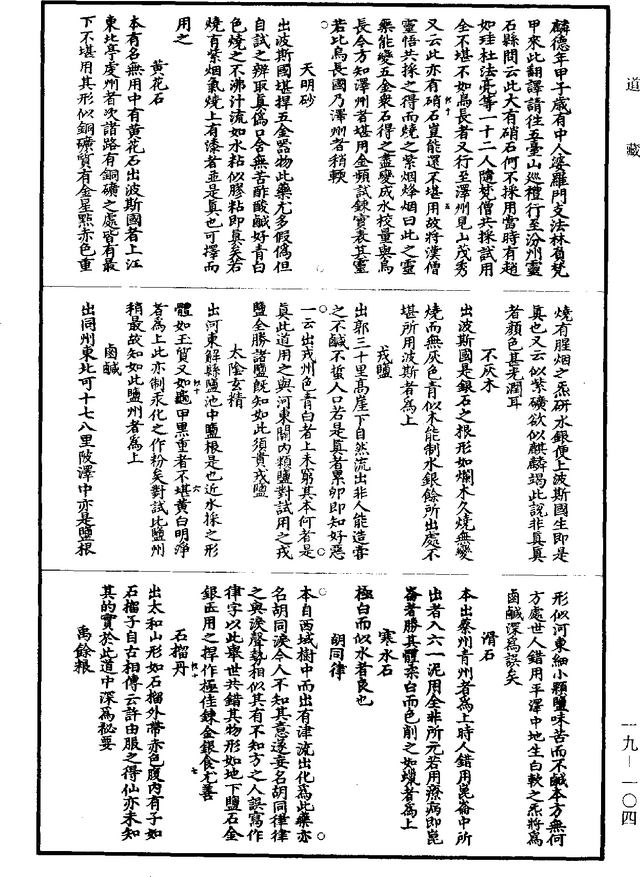 道藏
麟德年甲子歲有中人婆羅門支法林負梵
甲來此翻譯請往五臺山巡禮行至汾州靈
石縣問云此大有硝石何不採用當時有趙
如珪杜法亮等一十二人隨梵僧共採試用
全不堪不如烏長者又行至澤州見山茂秀
又云此亦有硝石豈能還不堪用故將漢僧
靈悟共採之得而燒之紫烟烽烟曰此之靈
藥能變五金衆石得之盡變成水校量與烏
長今方知澤州者堪用金頻試鍊實表其靈
若比烏長國乃澤州者稍軟
天明砂
出波斯國堪捍五金器物此藥尤多假僞但
自試之辨取真僞口含無苦酢酸鹹好青白
色燒之不沸汁流如水粘似膠粘即真矣若
燒有紫烟氣燒上有漆者並是真也可擇而
用之
黃花石
本有名無用中有黃花石出波斯國者上江
東北亭處州者次諸路有銅礦之處皆有最
下不堪用其形似銅礦質有金星點赤色重
燒有腥烟之炁研水銀便上波斯國生即是
真也又云似紫礦欲似麒麟竭此說非真真
者顏色甚光潤耳
不灰木
出波斯國是銀石之根形如爛木久燒無變
燒而無灰色青似木能制水銀餘所出處不
堪所用波斯者爲上
戎鹽
出郭三十里高崖下自然流出非人能造
之不鹹不蜇人口若是真者累卵即知好惡
一云出戎州色青白者上未窮其本何者是
真此道用之與河東關內類鹽對試用之戎
鹽全勝諸鹽旣知如此須貴戎鹽
太陰玄精
出河東解縣鹽池中鹽根是也近水採之形
體如玉質又如龜甲黑重者不堪黃白明淨
者爲上此亦制汞化之作粉矣對試比鹽州
稍最故知如此鹽州者爲上
鹵鹹
出同州東北可十七八里陂澤中亦是鹽根
形似河東細小顆鹽味苦而不鹹本方無何
方處世人錯用平澤中地生白軟之炁將爲
鹵鹹深爲誤矣
滑石
本出蔡州青州者爲上時人錯用崑崙中所
出者入六一泥用全非所元若用療病即崑
崙者勝其體柔白而色削之如蠟者爲上
寒水石
極白而似水者良也
胡同律
本自西域樹中而出有津流出化爲此藥亦
名胡同淚今人不知其意遂妄名胡同律律
之與淚聲勢相似其有不知方之人誤寫作
律字以此舉世共錯其物形如地下鹽石金
銀匠用之捍作極佳鍊金銀食尤善
石榴丹
出太和山形如石榴外帶赤色腹內有子如
石榴子自古相傳云許由服之得仙亦未知
其的實於此道中深爲秘要
禹餘粮
一九—一〇四